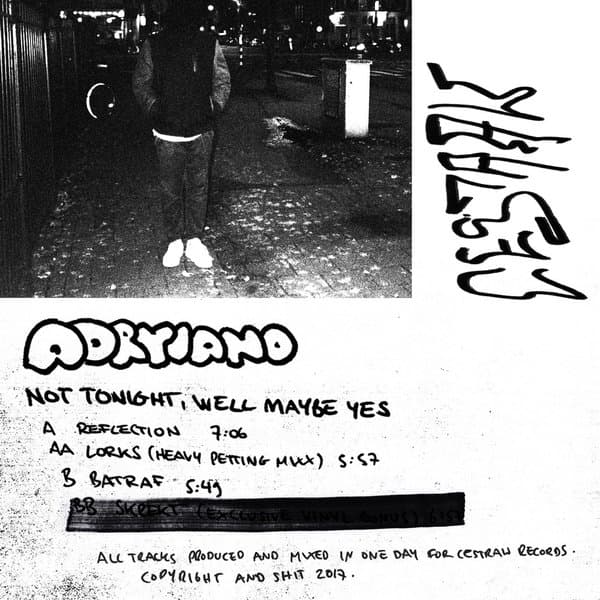 CESTRAW
ADRYIANO
NOT TONIGHT, WELL MAYBE YES
A REFLECTION 7:06
AA LORKS (HEAVY PETTING MIXX) 5:57
B BATRAF 5:49
BB (EXCLUSIVE VINYL BONUS)
ALL TRACKS PRODUCED AND MIXED IN ONE DAY FOR CESTRAW RECORDS.
COPYRIGHT AND SHIT 2017.